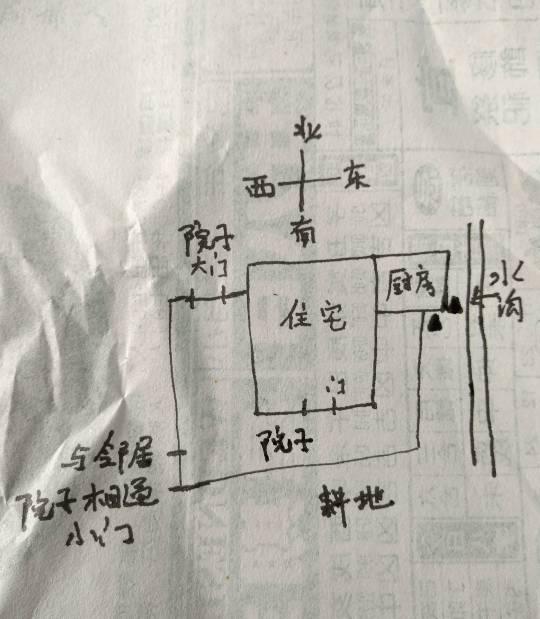 北
西 东
南
院子
大门
住宅
厨房
水
沟
门
院子
与邻居
院子相通
小门
耕地